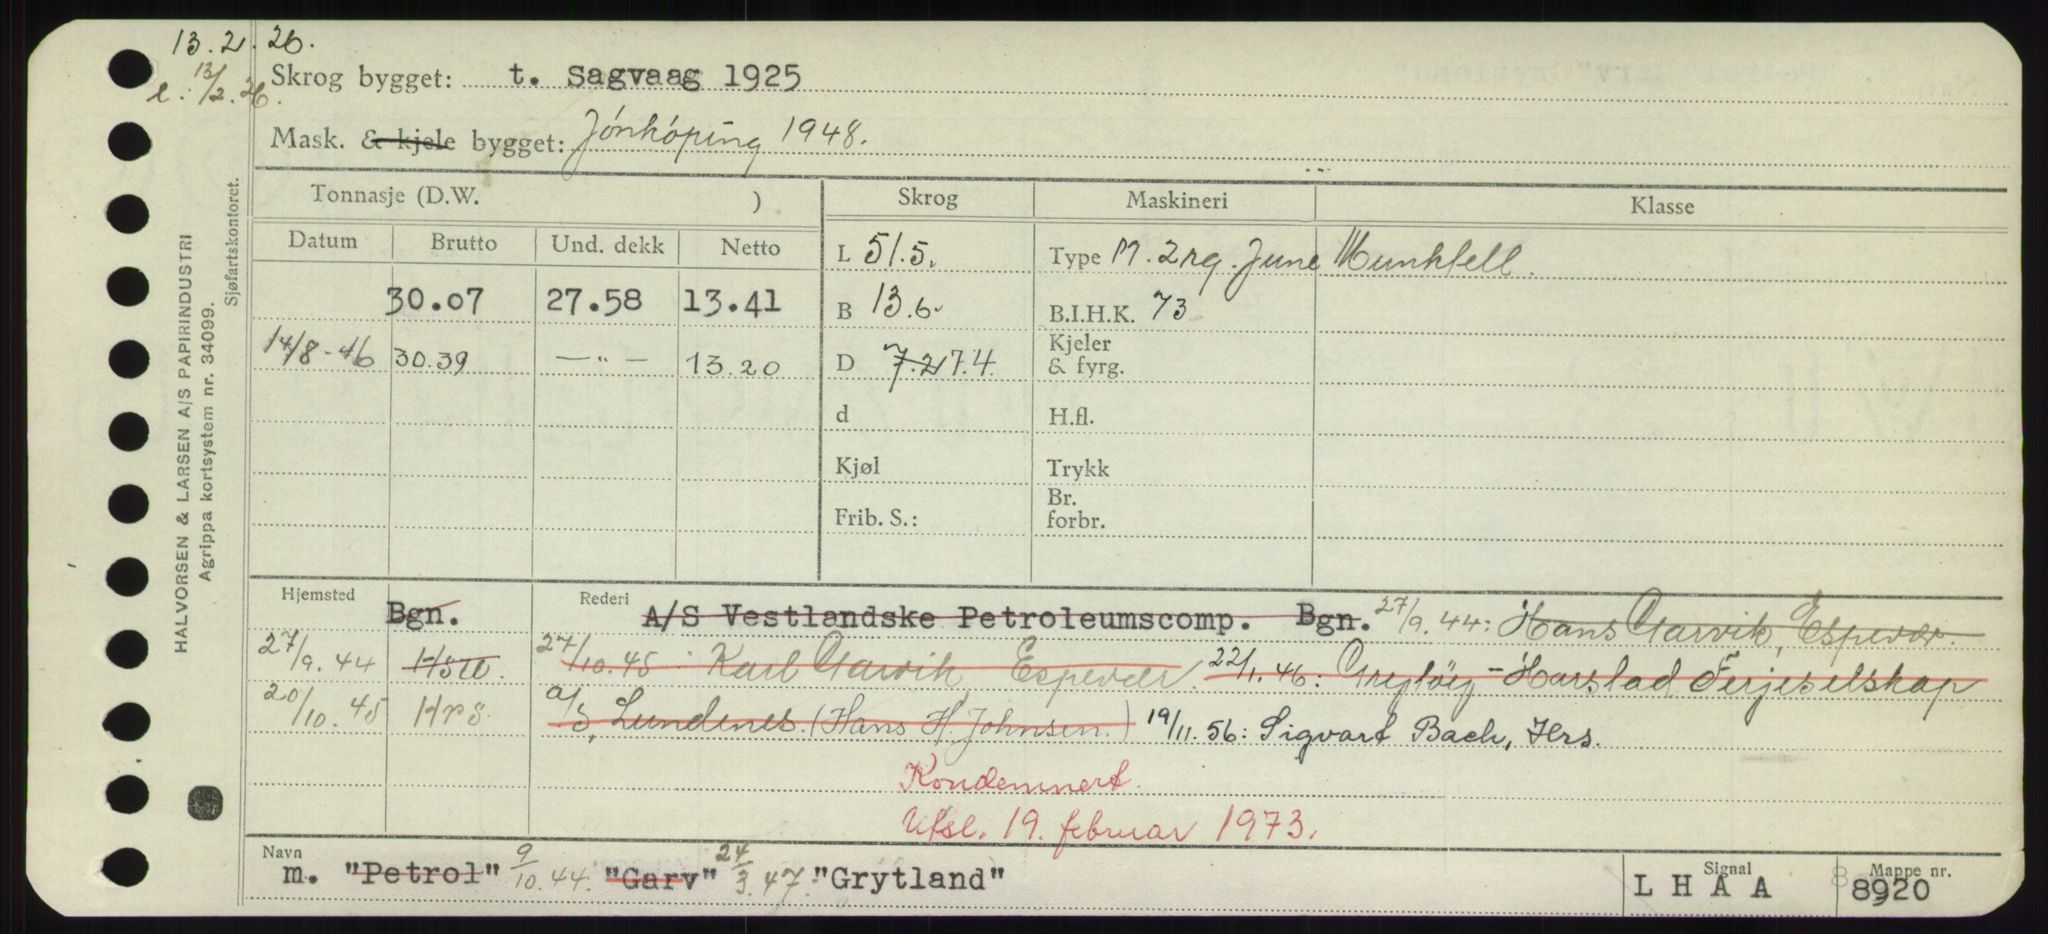 13.2.26.
l. 13/2.26.
Skrog bygget: t. Sagvaag 1925
Mask. & kjele bygget: Jönköping 1948.
HALVORSEN & LARSEN A/S PAPIRINDUSTRI
Agrippa kortsystem nr. 34099.
Sjøfartskontoret.
Tonnasje (D.W. ) Skrog Maskineri Klasse
Datum Brutto Und. dekk Netto L 51.5. Type M. 2 rg. June Munktell.
30.07 27.58 13.41 B 13.6. B.I.H.K. 73
14/8-46 30.39 —"— 13.20 D 7.2 7.4. Kjeler & fyrg.
d H.fl.
Kjøl Trykk
Frib. S.: Br. forbr.
Hjemsted Bgn. Rederi A/S Vestlandske Petroleumscomp. Bgn. 27/9.44: Hans Garvik, Espevær.
27/9.44 27/10.45: Karl Garvik, Espevær. 22/1.46: Grytöy-Harstad Ferjeselskap
20/10.45 Hrs. a/s, Lundenes. (Hans H. Johnsen.) 19/11.56: Sigvart Bach, Hrs.
Kondemnert.
Utsl. 19. februar 1973.
Navn m. "Petrol" 9/10.44. "Garv" 24/3.47. "Grytland" Signal L H A A Mappe nr. 8920